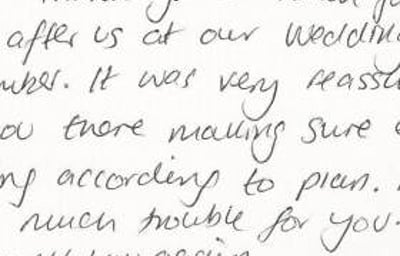 after us at our wedding
mber. It was very reass
ou there making sure
ng according to plan.
much trouble for you.